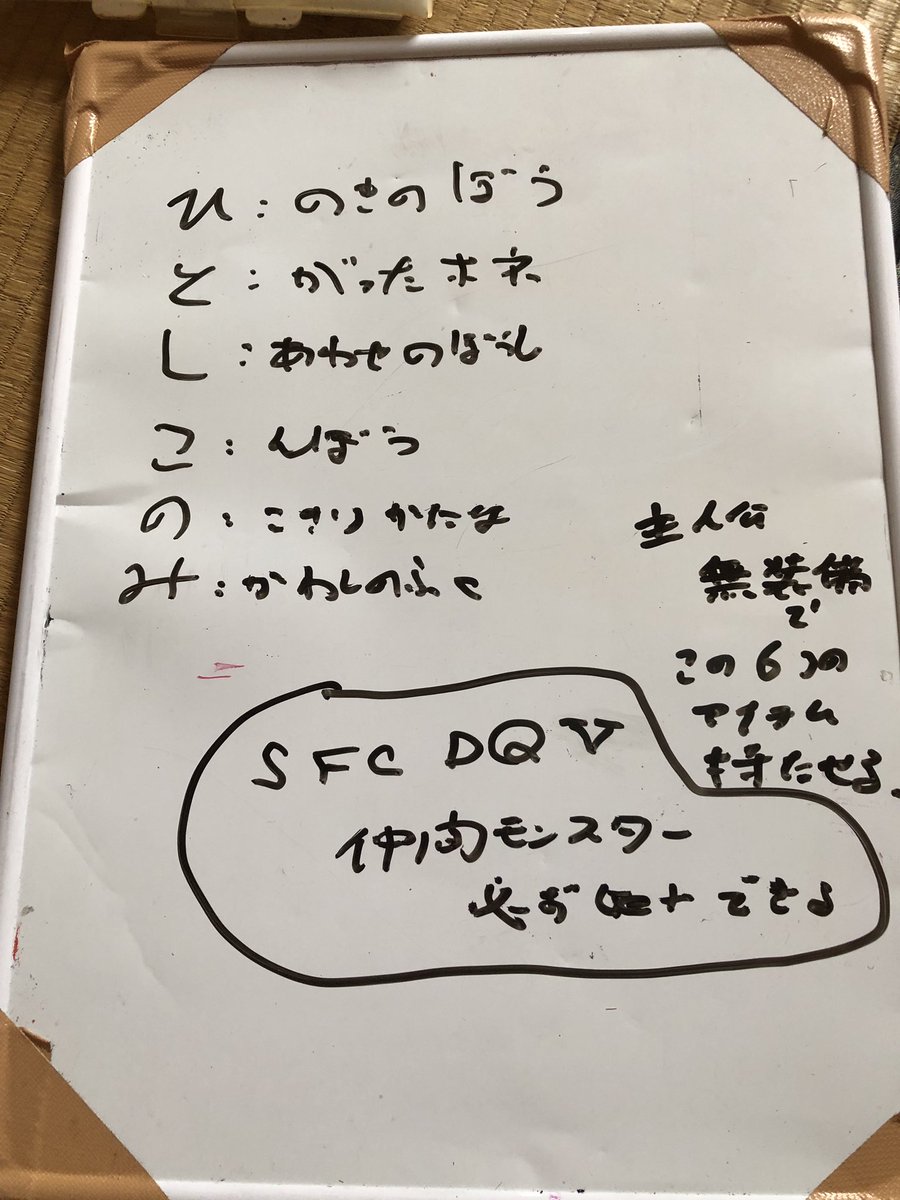 ひ：のきのぼう
と：がったホネ
し：あわせのぼうし
こ：んぼう
の：こぎりがたな
み：かわしのふく
主人公
無装備
で
この6つの
アイテム
持たせる。
SFC DQV
仲間モンスター
必ずGETできる